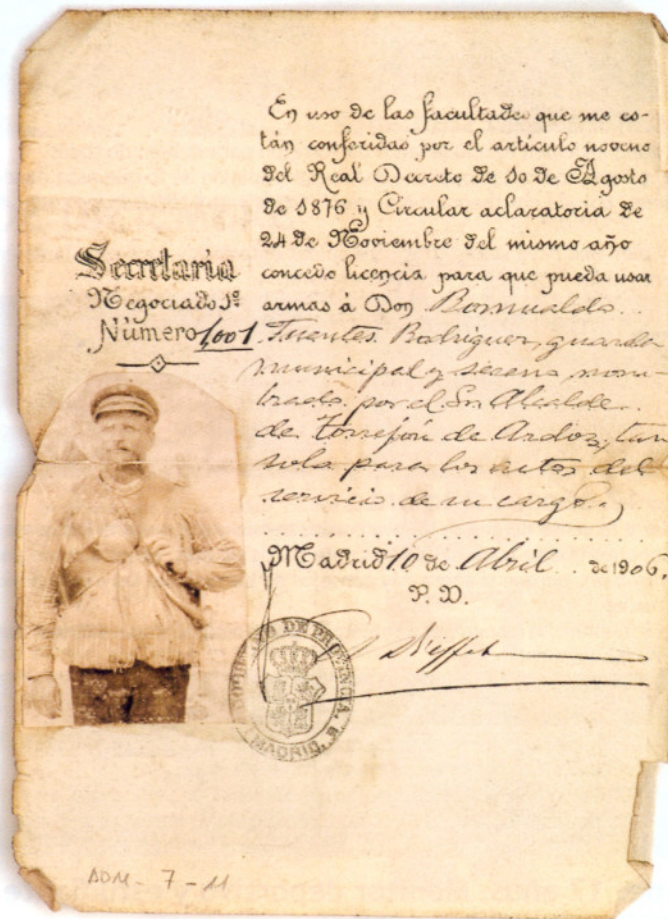 En uso de las facultades que me es-
tán conferidas por el artículo noveno
del Real Decreto de 10 de Agosto
de 1876 y Circular aclaratoria de
24 de Noviembre del mismo año
concedo licencia para que pueda usar
armas á Don Romualdo..
Fuentes Rodriguez, guarda
municipal y sereno nom-
brado por el Sr. Alcalde.
de Torrejón de Ardoz, tan
solo para los actos del
servicio de su cargo.
Madrid 10 de Abril . de 1906,
P. D.
Secretaría
Negociado 1º
Número 1,001
GOBIERNO DE PROVINCIA.
MADRID.
ADM - 7 - 11